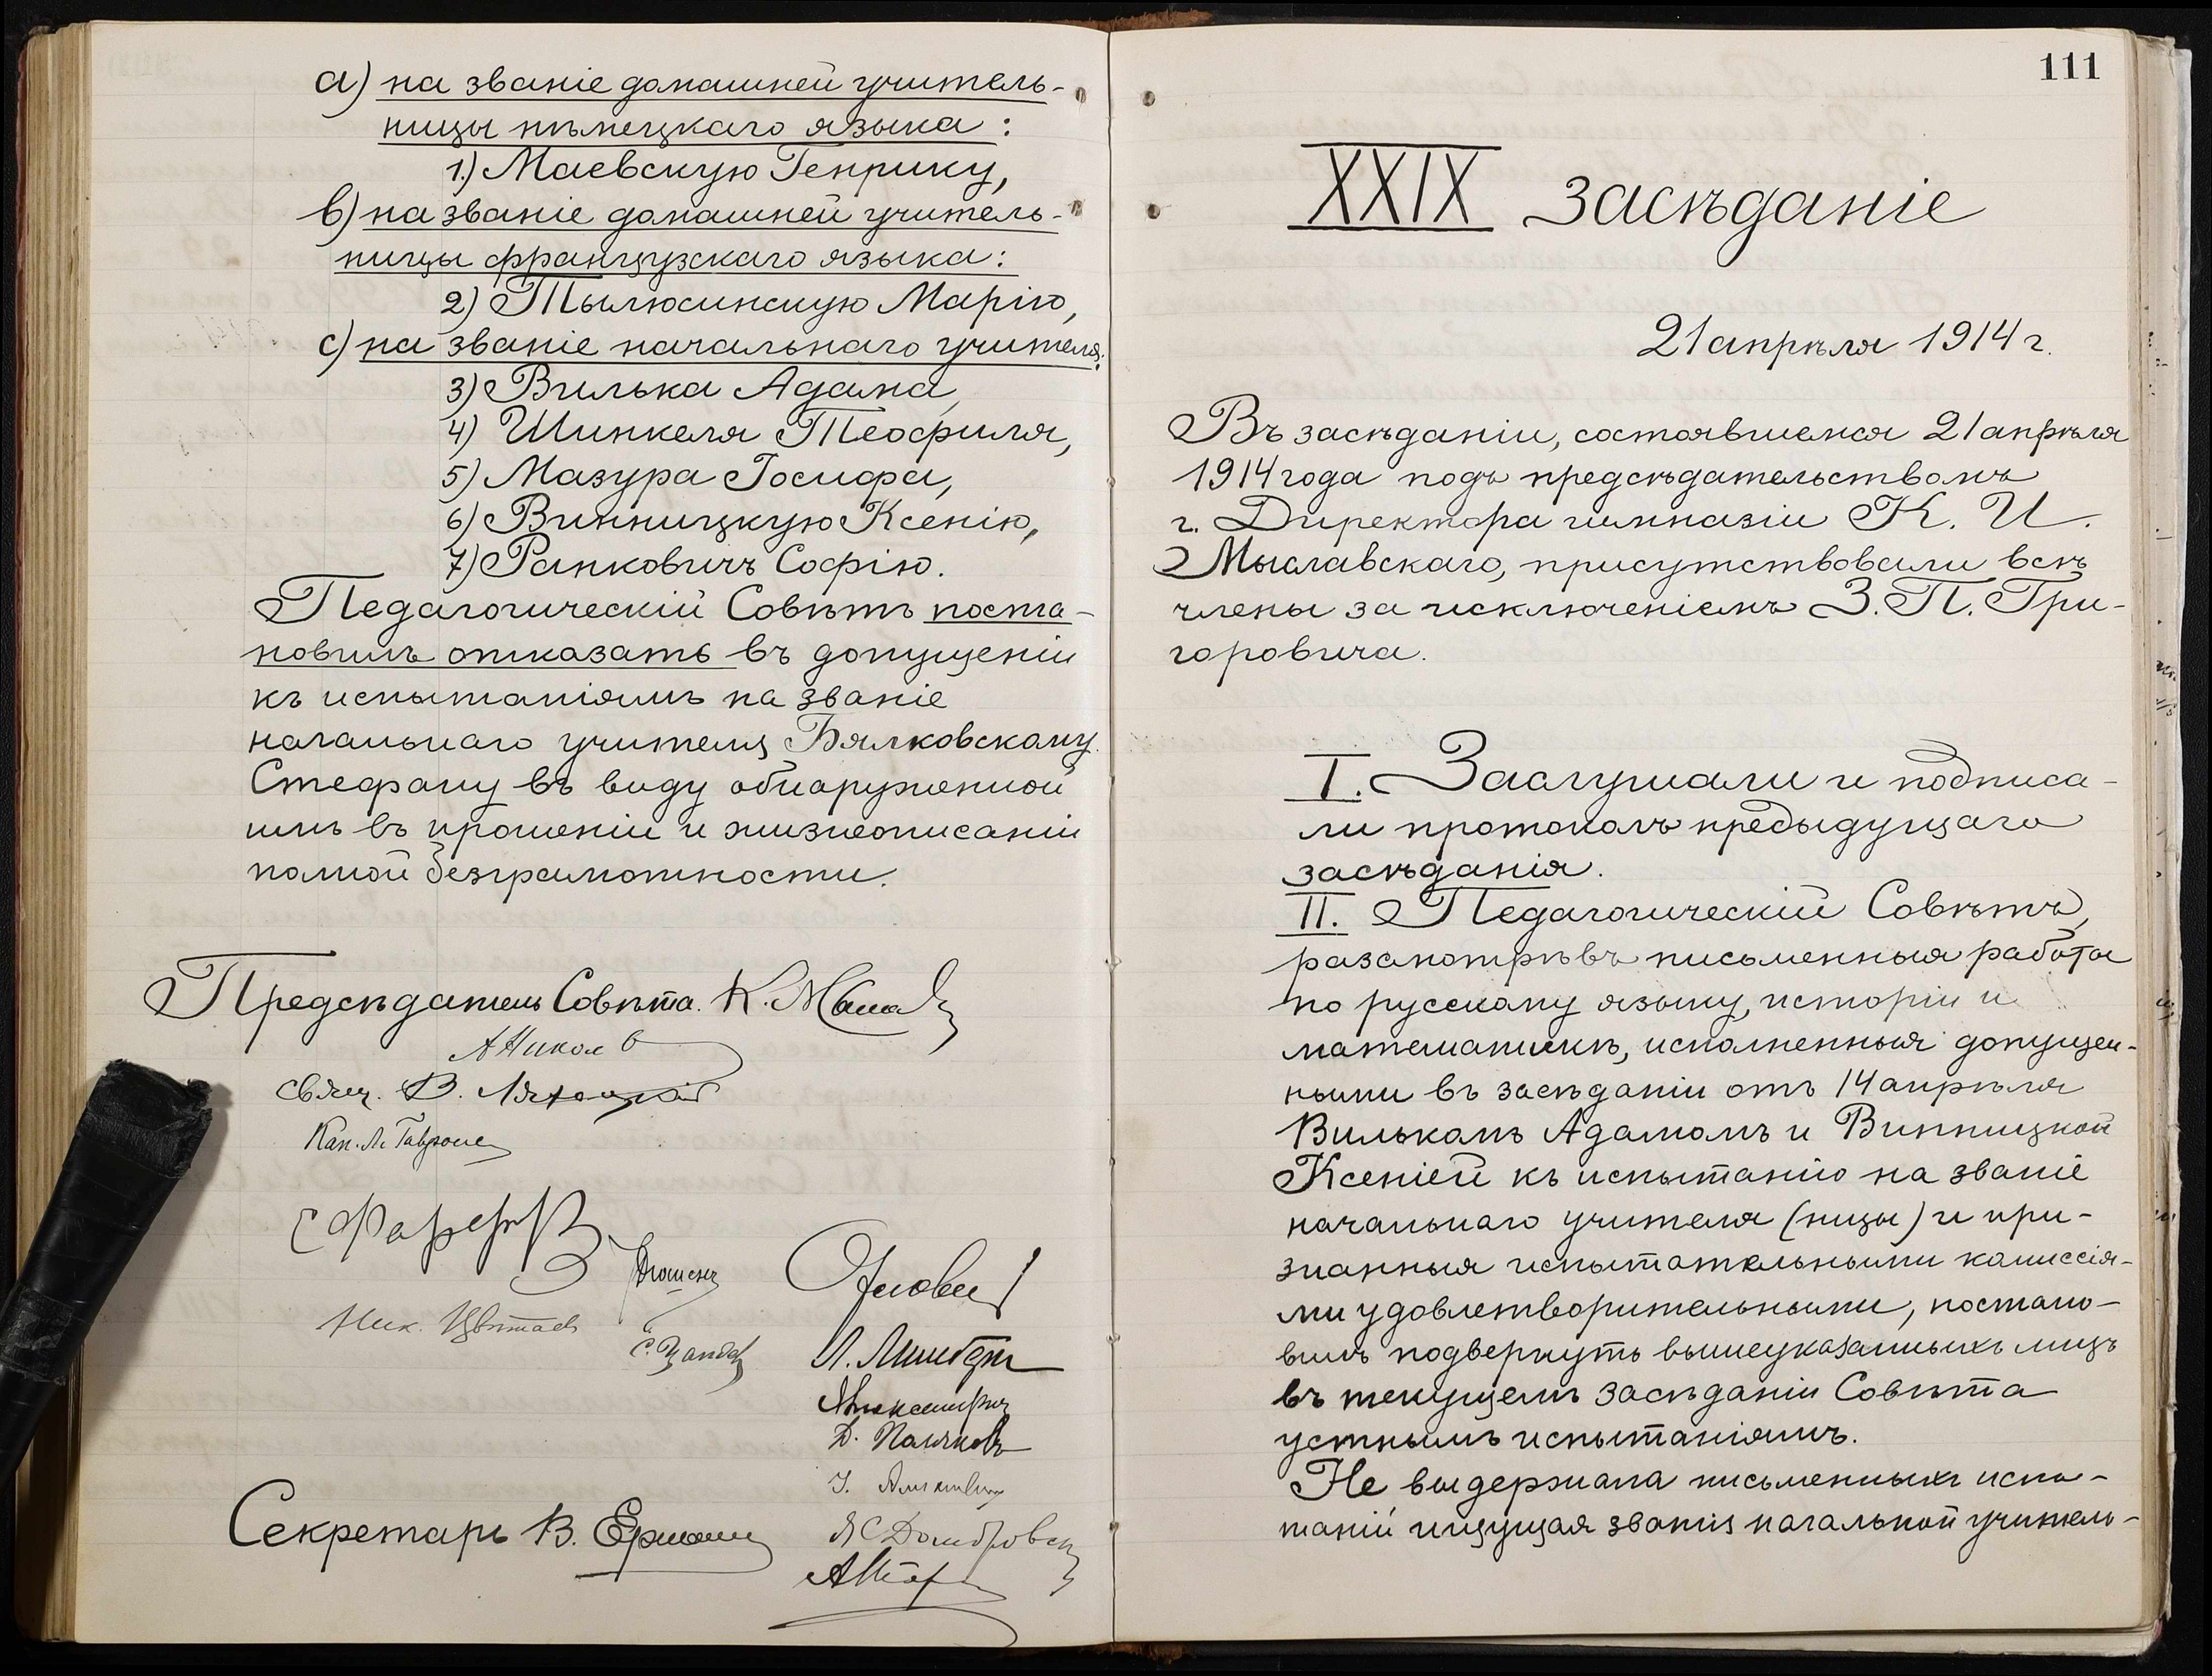 а) на званіе домашней учитель-
ницы нѣмецкаго языка:
1.) Маевскую Генрику,
в) на званіе домашней учитель-
ницы французскаго языка:
2) Тылюсинскую Марію,
с) на званіе начальнаго учителя:
3) Вилька Адама,
4) Шинкеля Теофиля,
5) Мазура Іосифа,
6) Винницкую Ксенію,
7) Ранковичъ Софію.
Педагогическій Совѣтъ поста-
новилъ отказать въ допущеніи
къ испытаніямъ на званіе
начальнаго учителя Бялковскому
Стефану въ виду обнаруженной
имъ въ прошеніи и жизнеописаніи
полной безграмотности.
Предсѣдатель Совѣта. К.
свящ. В.
Кап.
Ник. Цвѣтаев
Д. Поляковъ
Секретарь В.
111
XXIX Засѣданіе
21 апрѣля 1914 г.
Въ засѣданіи, состоявшемся 21 апрѣля
1914 года подъ предсѣдательствомъ
г. Директора гимназіи К. И.
Мыславскаго, присутствовали всѣ
члены за исключеніемъ З. П. Гри-
горовича.
I. Заслушали и подписа-
ли протоколъ предыдущаго
засѣданія.
II. Педагогическій Совѣтъ,
разсмотрѣвъ письменныя работы
по русскому языку, исторіи и
математикѣ, исполненныя допущен-
ными въ засѣданіи отъ 14 апрѣля
Вилькомъ Адамомъ и Винницкой
Ксеніей къ испытанію на званіе
начальнаго учителя (ницы) и при-
знанныя испытательными комиссія-
ми удовлетворительными, постано-
вилъ подвергнуть вышеуказанныхъ лицъ
въ текущемъ засѣданіи Совѣта
устнымъ испытаніямъ.
Не выдержала письменныхъ испы-
таній ищущая званія начальной учитель-